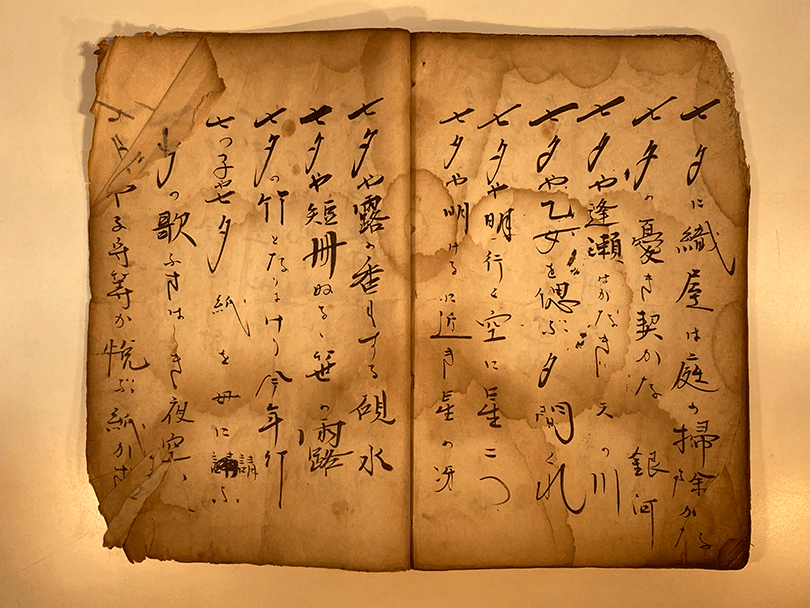 七夕に織屋は庭の掃除かな
七夕の憂き契かな
銀河
七夕や逢瀬はかなき天の川
七夕や乙女を偲ぶ夕間ぐれ
七夕や明行く空に星二つ
七夕や明けるに近き星の冴
七夕や露の香もする硯水
七夕や短冊ぬるゝ笹の雨
露
七夕の竹となりにけり今年竹
七つ子や七夕紙を母に請ふ
請
夕の歌ふさはしき夜空
や子等が悦ぶ紙